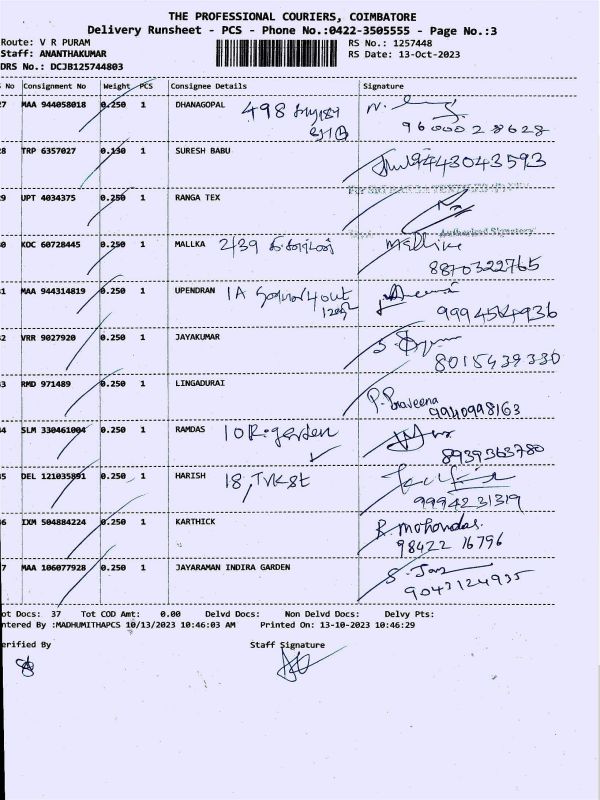 THE PROFESSIONAL COURIERS, COIMBATORE
Delivery Runsheet - PCS - Phone No.:0422-3505555 - Page No.:3
Route: V R PURAM
RS No.: 1257448
Staff: ANANTHAKUMAR
RS Date: 13-Oct-2023
DRS No.: DCJB125744803
No Consignment No Weight PCS Consignee Details Signature
7 MAA 944058018 0.250 1 DHANAGOPAL 498
960002 8628
8 TRP 6357027 0.130 1 SURESH BABU 9443043593
9 UPT 4034375 0.250 1 RANGA TEX
Authorised Signatory
0 KOC 60728445 0.250 1 MALLKA 2/39 Mallika
8870322765
1 MAA 944314819 0.250 1 UPENDRAN 1A
2 VRR 9027920 0.250 1 JAYAKUMAR
8015439330
3 RMD 971489 0.250 1 LINGADURAI
P. Praveena
9940998163
4 SLM 330461004 0.250 1 RAMDAS 10 R. garden
8939363780
5 DEL 121035891 0.250 1 HARISH 18, TVK st
9994231319
6 IXM 504884224 0.250 1 KARTHICK R. mohandas.
98422 16796
7 MAA 106077928 0.250 1 JAYARAMAN INDIRA GARDEN
9043124935
ot Docs: 37 Tot COD Amt: 0.00 Delvd Docs: Non Delvd Docs: Delvy Pts:
ntered By :MADHUMITHAPCS 10/13/2023 10:46:03 AM Printed On: 13-10-2023 10:46:29
erified By Staff Signature